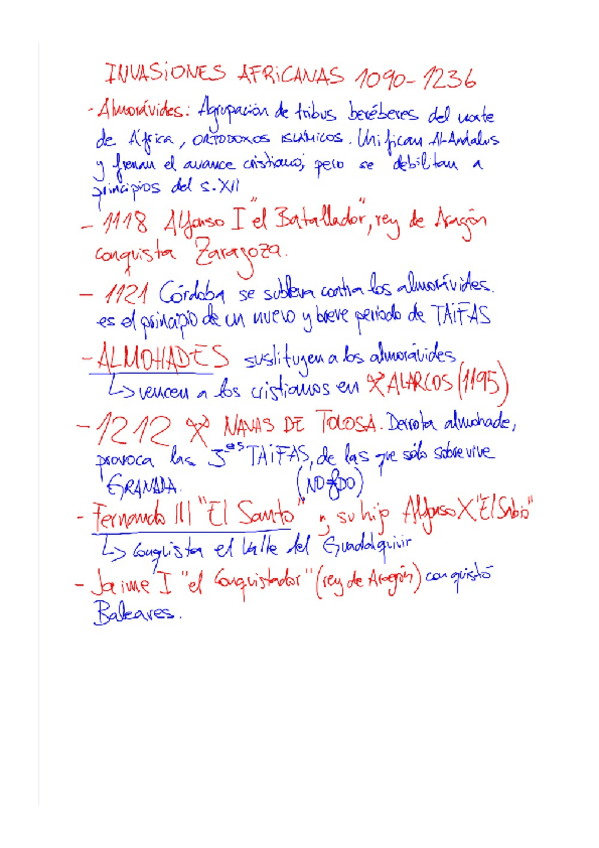 INVASIONES AFRICANAS 1090-1236
- Almorávides: Agrupación de tribus beréberes del norte
de África, ORTODOXOS ISLÁMICOS. Unifican Al-Andalus
y frenan el avance cristiano, pero se debilitan a
principios del s.XII
- 1118 Alfonso I "el Batallador", rey de Aragón
conquista Zaragoza.
- 1121 Córdoba se subleva contra los almorávides.
es el principio de un nuevo y breve periodo de TAIFAS
- ALMOHADES sustituyen a los almorávides
↳ vencen a los cristianos en ⚔ ALARCOS (1195)
- 1212 ⚔ NAVAS DE TOLOSA. Derrota almohade,
provoca las 3ᵃˢ TAIFAS, de las que sólo sobrevive
GRANADA. (NO8DO)
- Fernando III "El Santo" y su hijo Alfonso X "El Sabio"
↳ conquista el Valle del Guadalquivir
- Jaime I "el Conquistador" (rey de Aragón) conquistó
Baleares.